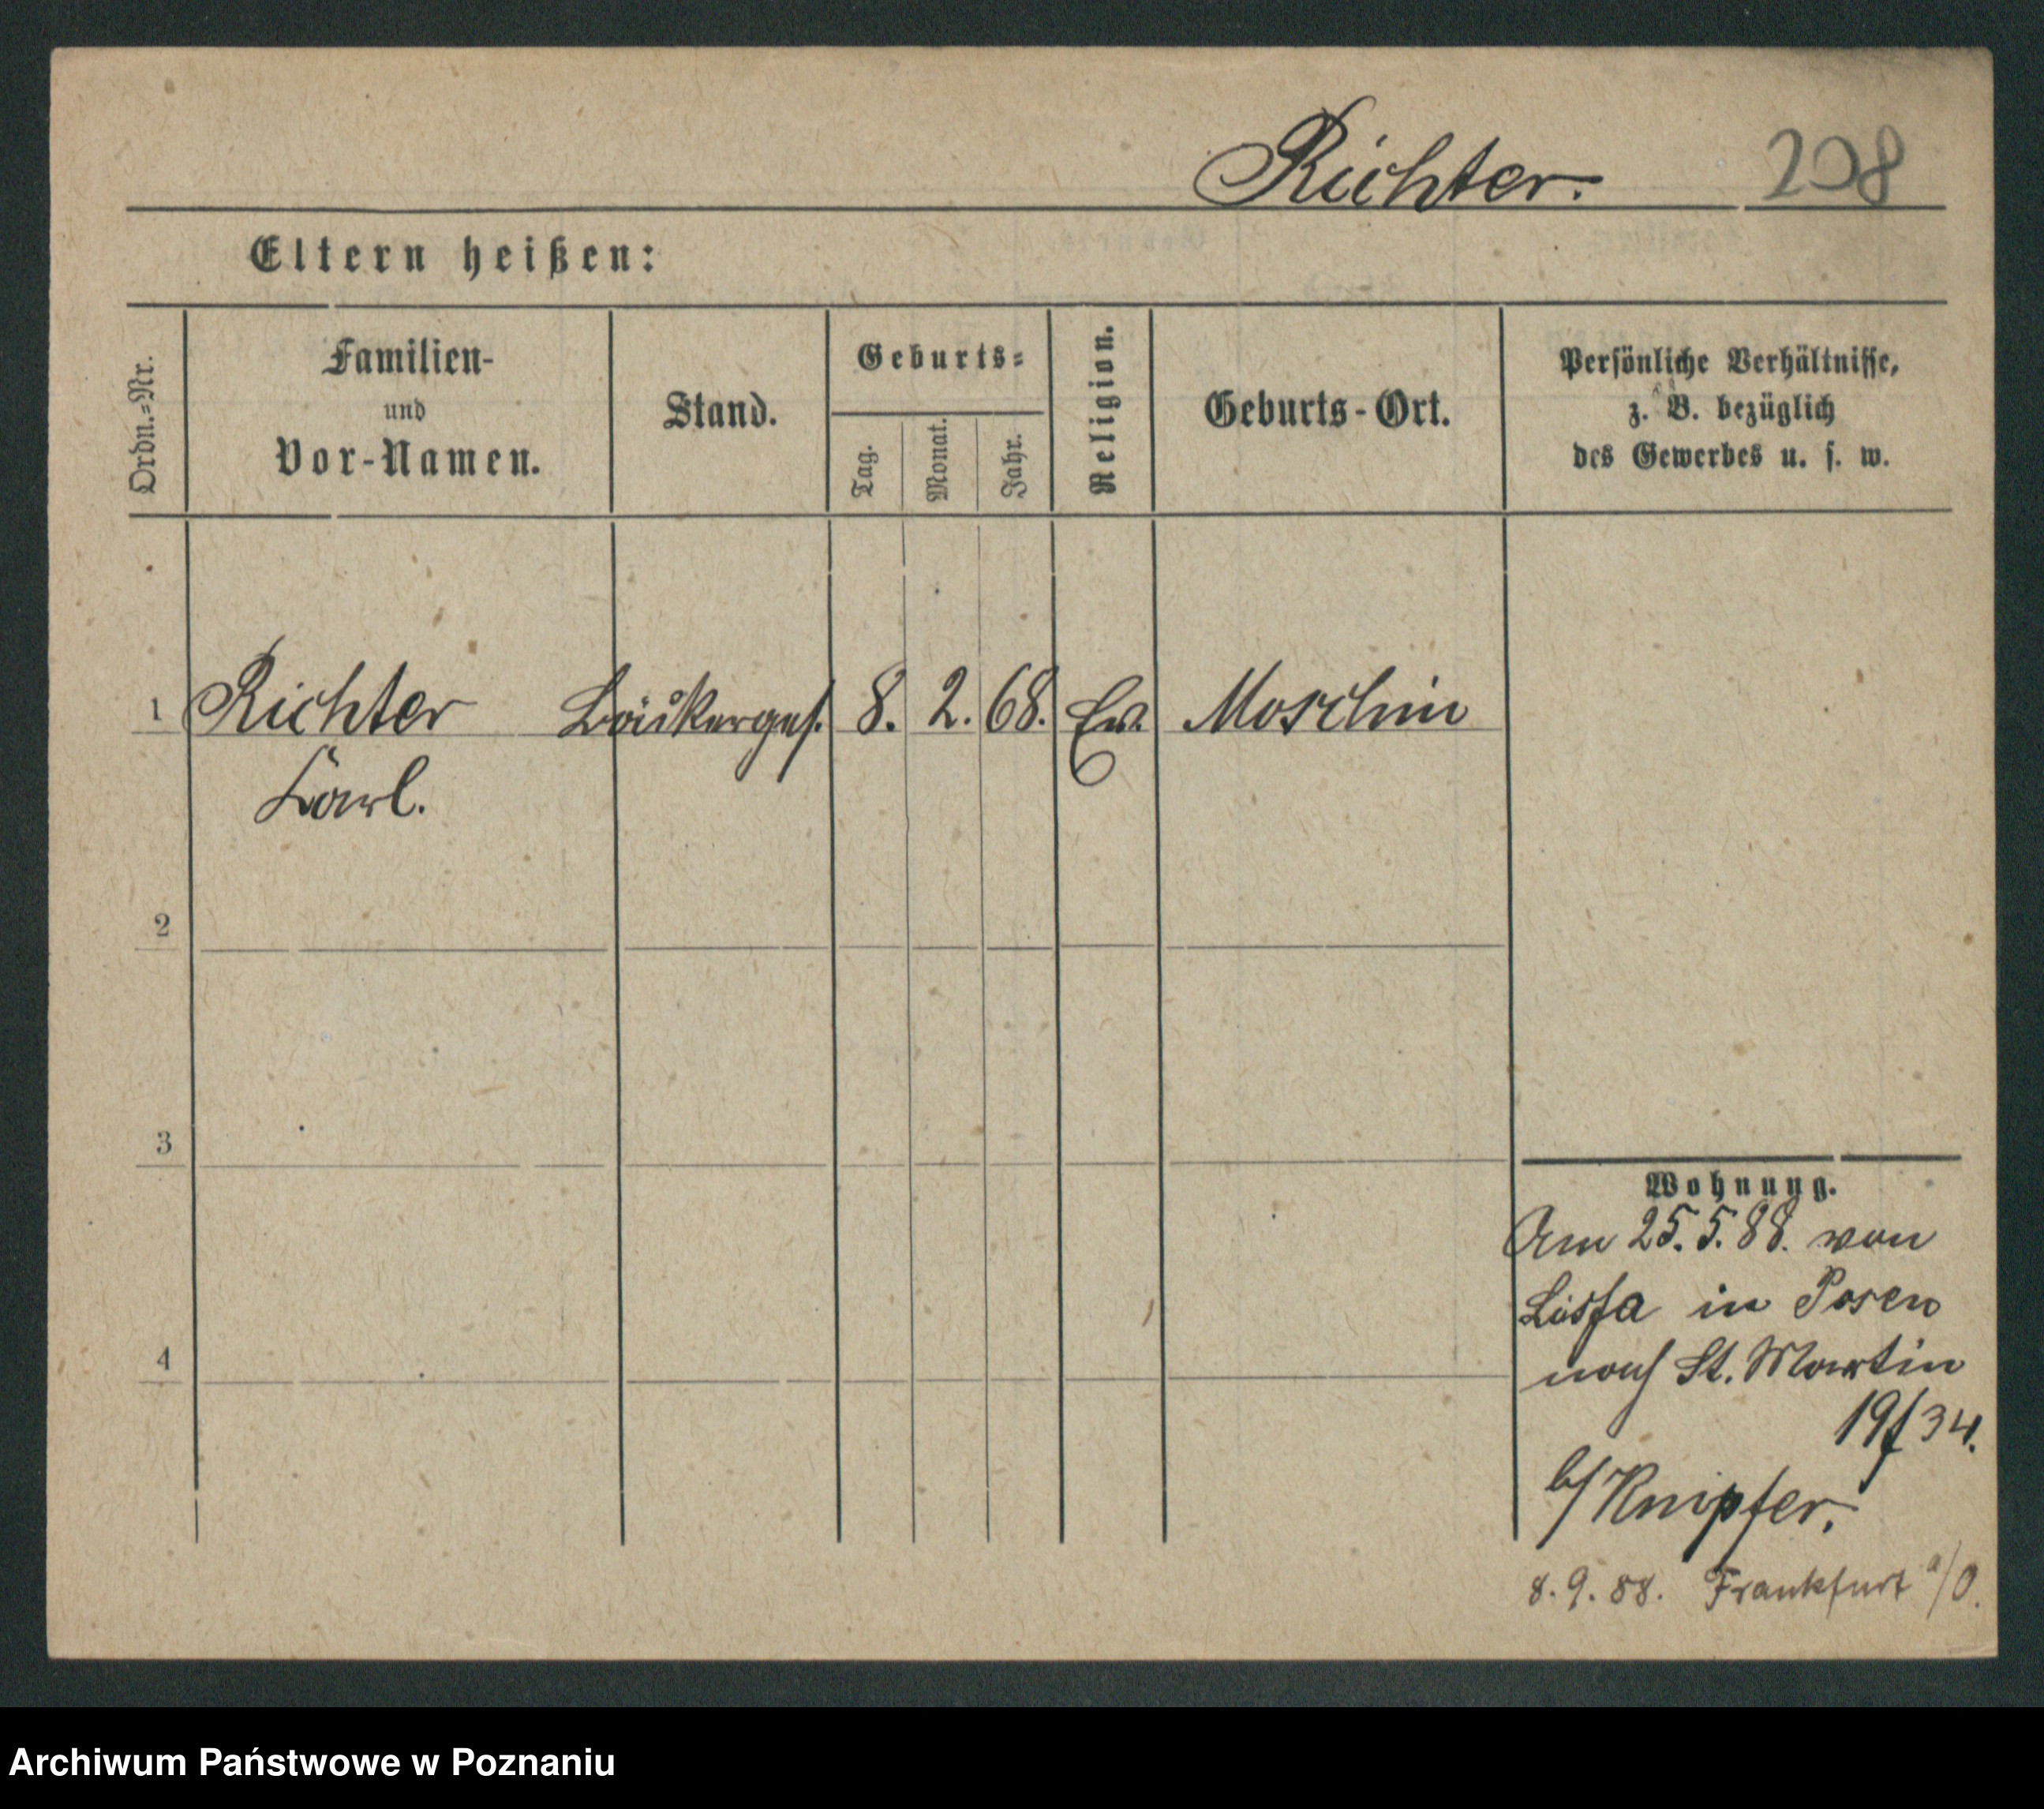 Richter. 208
Eltern heißen:
Ordn.-Nr.
Familien-
und
Vor-Namen.
Stand.
Geburts-
Tag.
Monat.
Jahr.
Religion.
Geburts-Ort.
Persönliche Verhältnisse,
z. B. bezüglich
des Gewerbes u. s. w.
1 Richter Bäckerges. 8. 2. 68. Ev. Moschin
Karl.
2
3
4
Wohnung.
Am 25.5.88. von
Lissa in Posen
nach St. Martin
19/34.
b/Knipfer.
8.9.88. Frankfurt a/O.
Archiwum Państwowe w Poznaniu